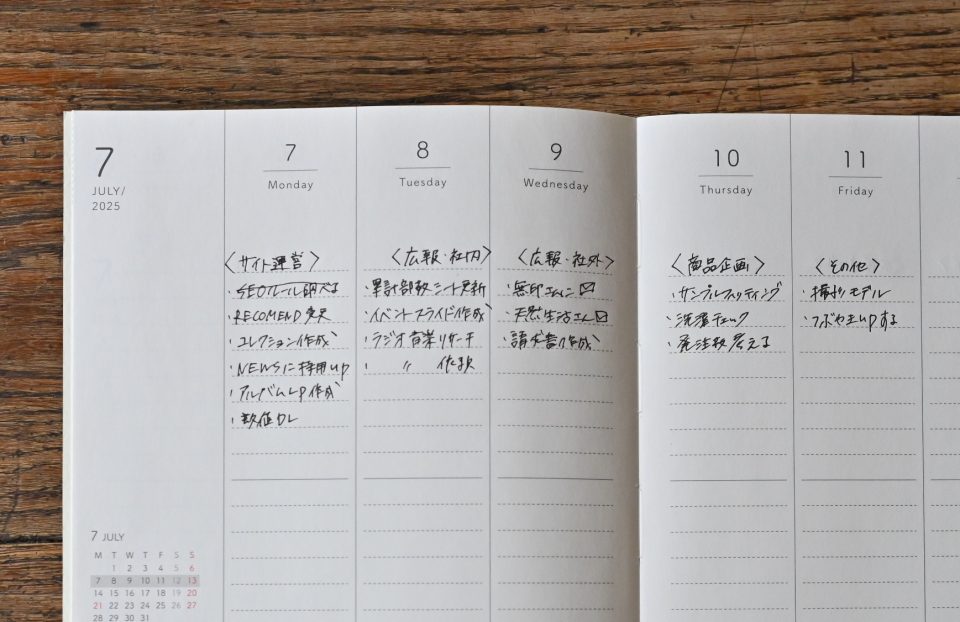 7
JULY/
2025
7
Monday
〈サイト運営〉
・SEOルール調べる
・RECOMEND 変更
・コレクション作成
・NEWSに採用up
・アルバムLP作成
・数値
8
Tuesday
〈広報・社内〉
・累計部数シート更新
・イベントスライド作成
・ラジオ音楽リサーチ
・ 〃
9
Wednesday
〈広報・社外〉
・無印さんへ
・天然生活さん
・請求書作成
10
Thursday
〈商品企画〉
・サンプルフィッティング
・洗濯チェック
・発注数考える
11
Friday
〈その他〉
・撮影モデル
・つぶやきupする
7 JULY
M T W T F S S
1 2 3 4 5 6
7 8 9 10 11 12 13
14 15 16 17 18 19 20
21 22 23 24 25 26 27
28 29 30 31